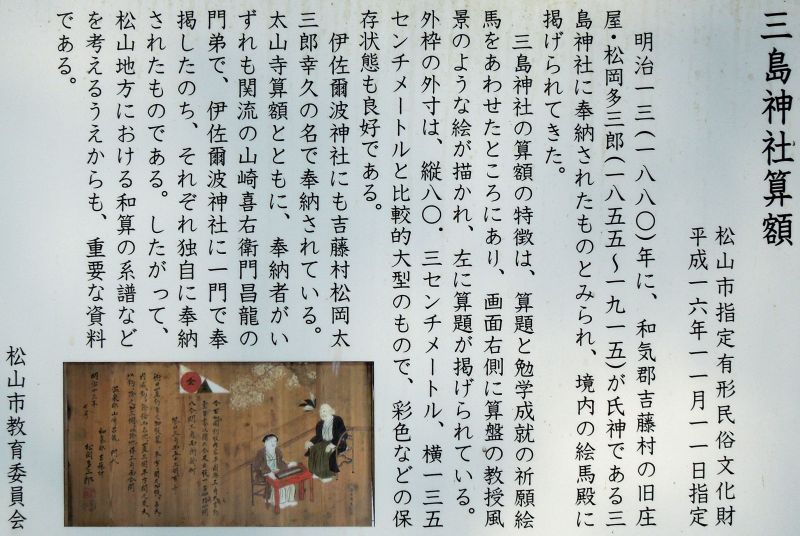 三島神社算額
松山市指定有形民俗文化財
平成一六年一一月一一日指定
明治一三(一八八〇)年に、和気郡吉藤村の旧庄
屋・松岡多三郎(一八五五～一九一五)が氏神である三
島神社に奉納されたものとみられ、境内の絵馬殿に
掲げられてきた。
三島神社の算額の特徴は、算題と勉学成就の祈願絵
馬をあわせたところにあり、画面右側に算盤の教授風
景のような絵が描かれ、左に算題が掲げられている。
外枠の外寸は、縦八〇・三センチメートル、横一三五
センチメートルと比較的大型のもので、彩色などの保
存状態も良好である。
伊佐爾波神社にも吉藤村松岡太
三郎幸久の名で奉納されている。
太山寺算額とともに、奉納者がい
ずれも関流の山崎喜右衛門昌龍の
門弟で、伊佐爾波神社に一門で奉
掲したのち、それぞれ独自に奉納
されたものである。したがって、
松山地方における和算の系譜など
を考えるうえからも、重要な資料
である。
松山市教育委員会